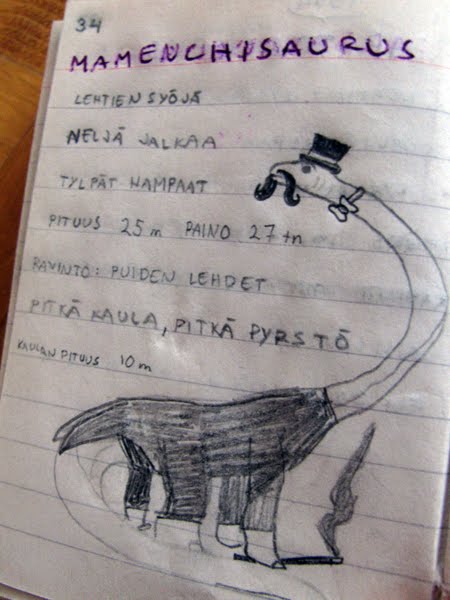 34
MAMENCHISAURUS
LEHTIEN SYÖJÄ
NELJÄ JALKAA
TYLPÄT HAMPAAT
PITUUS 25 m PAINO 27 tn
RAVINTO: PUIDEN LEHDET
PITKÄ KAULA, PITKÄ PYRSTÖ
KAULAN PITUUS 10 m